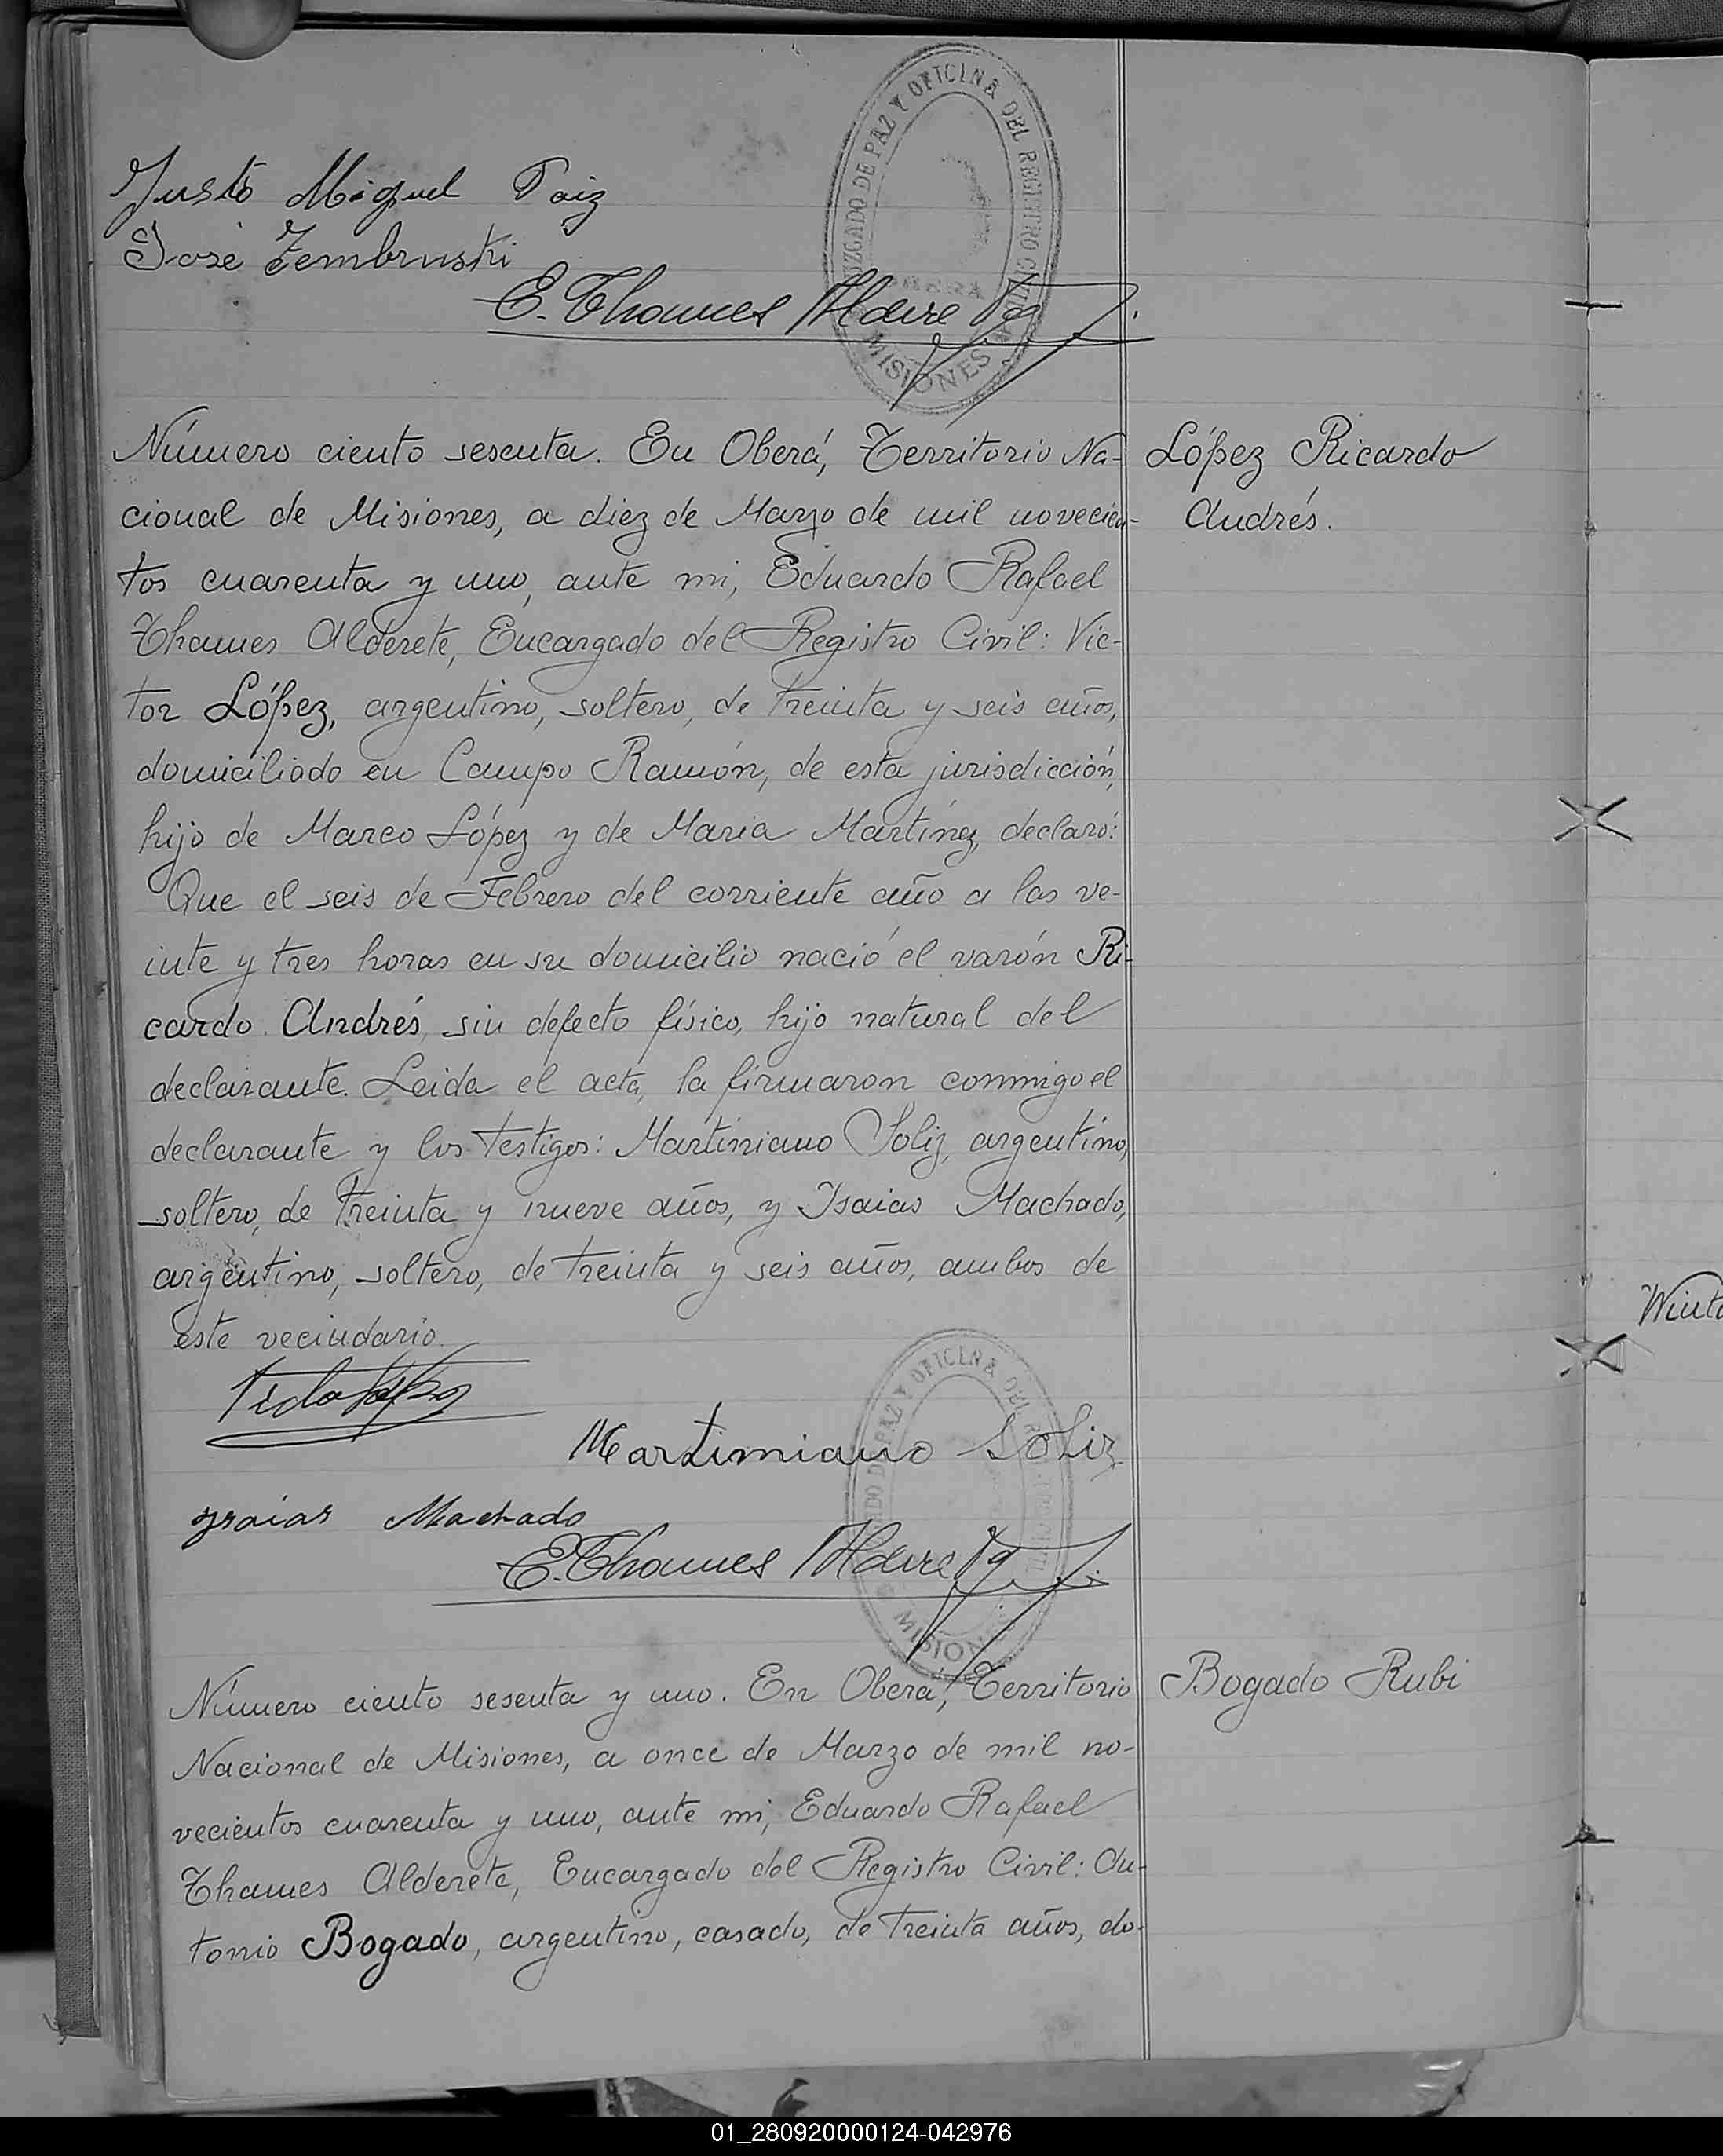 Justo Miguel Paiz
José Zembruski
E. Thames Alderete
JUZGADO DE PAZ Y OFICINA DEL REGISTRO CIVIL
OBERA
MISIONES
Número ciento sesenta. En Oberá, Territorio Na-
López Ricardo
cional de Misiones, a diez de Marzo de mil novecien-
Andrés.
tos cuarenta y uno, ante mi, Eduardo Rafael
Thames Alderete, Encargado del Registro Civil: Vic-
tor López, argentino, soltero, de treinta y seis años,
domiciliado en Campo Ramón, de esta jurisdicción,
hijo de Marco López y de Maria Martínez, declaró:
Que el seis de Febrero del corriente año a las ve-
inte y tres horas en su domicilio nació el varón Ri-
cardo Andrés, sin defecto físico, hijo natural del
declarante. Leida el acta, la firmaron conmigo el
declarante y los testigos: Martiniano Soliz, argentino,
soltero, de treinta y nueve años, y Isaias Machado,
argentino, soltero, de treinta y seis años, ambos de
este vecindario.
Martimiano Soliz
Ysaias Machado
E. Thames Alderete
PAZ Y OFICINA DEL
MISIONES
Número ciento sesenta y uno. En Oberá, Territorio
Bogado Rubi
Nacional de Misiones, a once de Marzo de mil no-
vecientos cuarenta y uno, ante mi, Eduardo Rafael
Thames Alderete, Encargado del Registro Civil: An-
tonio Bogado, argentino, casado, de treinta años, do-
01_280920000124-042976